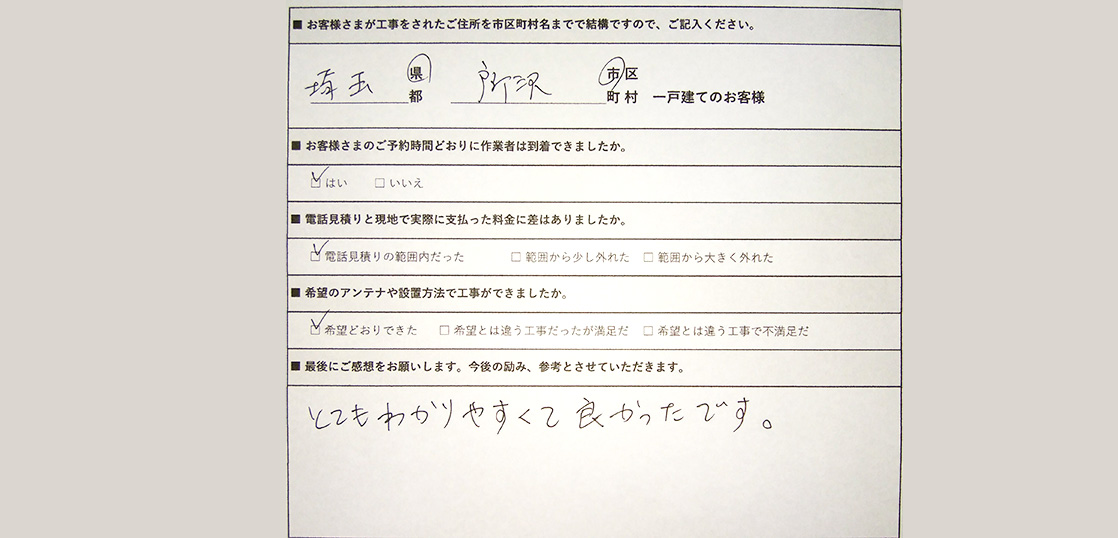 ■ お客様さまが工事をされたご住所を市区町村名までで結構ですので、ご記入ください。
埼玉 県 所沢 市 区
都 町 村 一戸建てのお客様
■ お客様さまのご予約時間どおりに作業者は到着できましたか。
☑ はい □ いいえ
■ 電話見積りと現地で実際に支払った料金に差はありましたか。
☑ 電話見積りの範囲内だった □ 範囲から少し外れた □ 範囲から大きく外れた
■ 希望のアンテナや設置方法で工事ができましたか。
☑ 希望どおりできた □ 希望とは違う工事だったが満足だ □ 希望とは違う工事で不満足だ
■ 最後にご感想をお願いします。今後の励み、参考とさせていただきます。
とてもわかりやすくて良かったです。